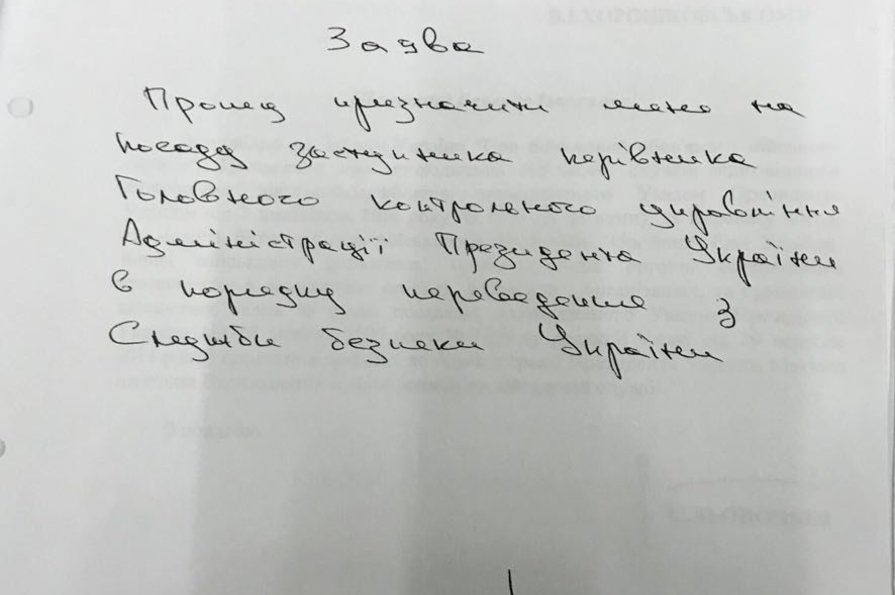 Заява
Прошу призначити мене на
посаду заступника керівника
Головного контрольного управління
Адміністрації Президента України
в порядку переведення з
Служби безпеки України